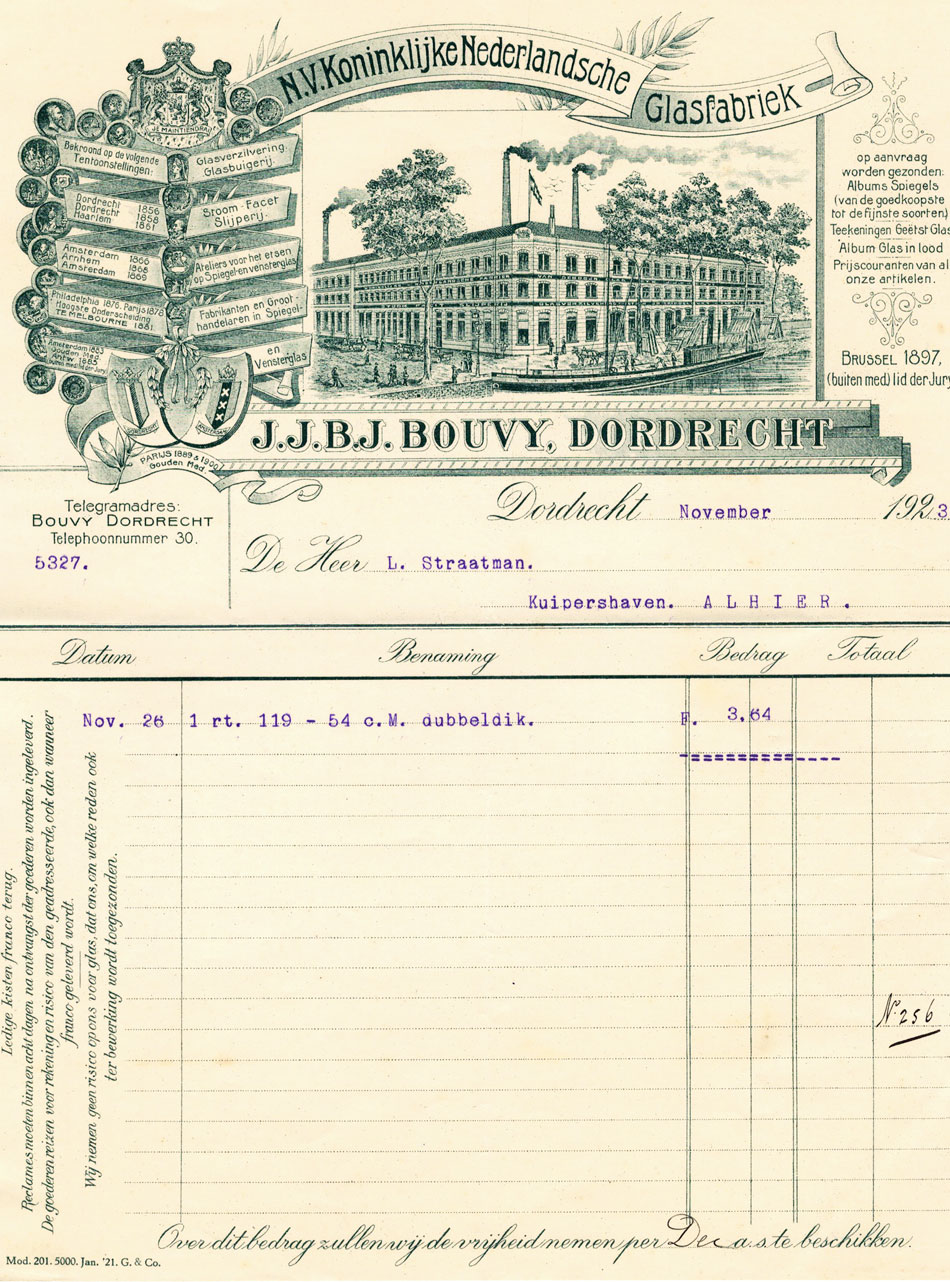 N.V. Koninklijke Nederlandsche
Glasfabriek
JE MAINTIENDRAI
Bekroond op de volgende
Tentoonstellingen:
Dordrecht 1856
Dordrecht 1858
Haarlem 1861
Amsterdam 1866
Arnhem 1868
Amsterdam 1869
Philadelphia 1876. Parijs 1878
Hoogste Onderscheiding
TE MELBOURNE 1881
Amsterdam 1883
Gouden Med.
Antw. 1885
PARIJS 1889 & 1900
Gouden Med.
Glasverzilvering
Glasbuigerij.
Stoom-Facet
Slijperij.
Ateliers voor het etsen
op Spiegel-en vensterglas
Fabrikanten en Groot
handelaren in Spiegel-
en
Vensterglas
op aanvraag
worden gezonden:
Albums Spiegels
(van de goedkoopste
tot de fijnste soorten)
Teekeningen Geëtst Glas
Album Glas in lood
Prijscouranten van al
onze artikelen.
BRUSSEL 1897.
(buiten med) lid der Jury
J.J.B.J. BOUVY, DORDRECHT
Telegramadres:
BOUVY DORDRECHT
Telephoonnummer 30.
5327.
Dordrecht November 1923
De Heer L. Straatman.
Kuipershaven. A L H I E R .
Datum Benaming Bedrag Totaal
Nov. 26 1 rt. 119 - 54 c.M. dubbeldik. F. 3,64
Nº 256
Ledige kisten franco terug.
Reclames moeten binnen acht dagen na ontvangst der goederen worden ingeleverd.
De goederen reizen voor rekening en risico van den geadresseerde, ook dan wanneer
franco geleverd wordt.
Wij nemen geen risico op ons voor glas, dat ons, om welke reden ook
ter bewerking wordt toegezonden.
Over dit bedrag zullen wij de vrijheid nemen per Dec a.s. te beschikken.
Mod. 201. 5000. Jan. '21. G. & Co.